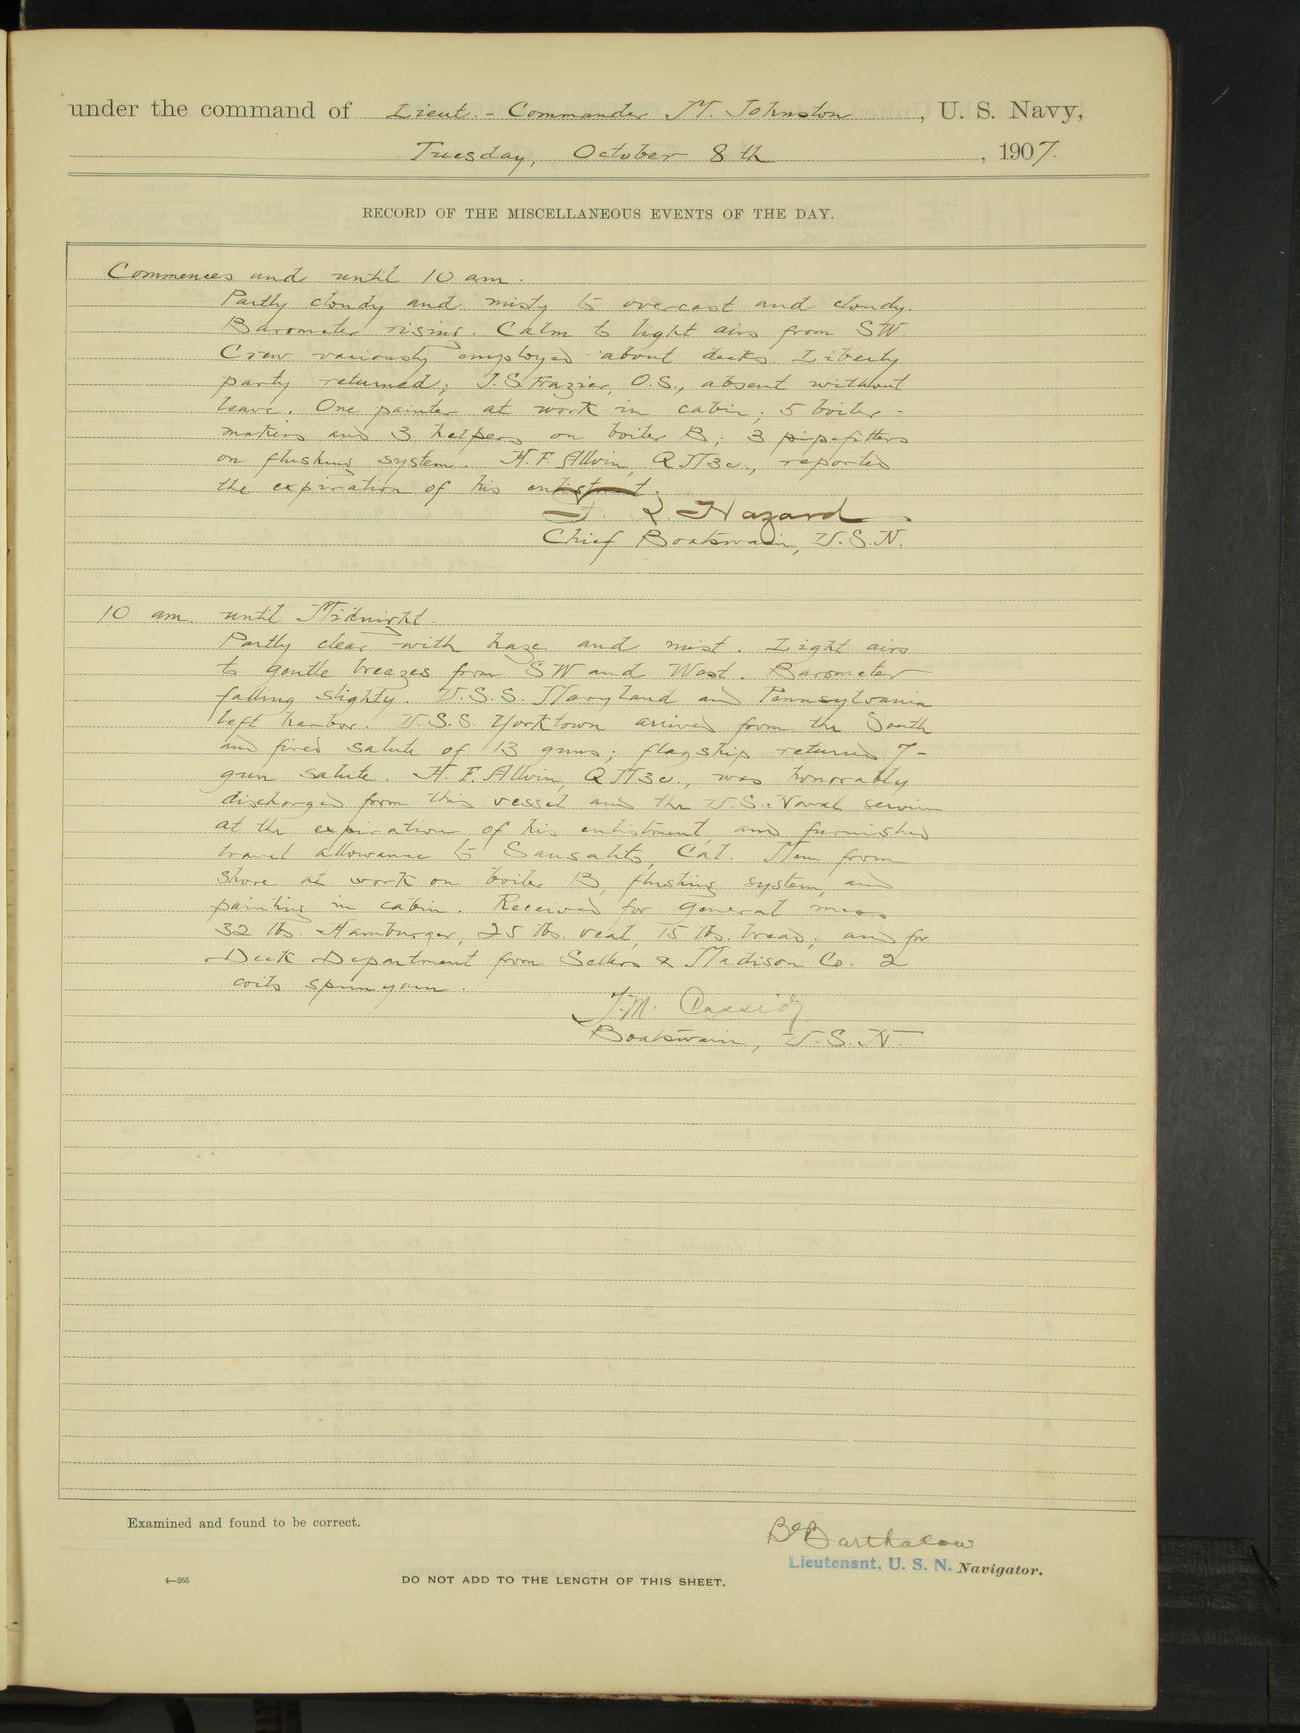 under the command of Lieut.-Commander M. Johnston, U. S. Navy,
Tuesday, October 8th, 1907.
RECORD OF THE MISCELLANEOUS EVENTS OF THE DAY.
Commences and until 10 am.
Partly cloudy and misty to overcast and cloudy.
Barometer rising. Calm to light airs from SW.
Crew variously employed about decks. Liberty
party returned; J.S. Frazier, O.S., absent without
leave. One painter at work in cabin; 5 boiler-
makers and 3 helpers on boiler B; 3 pipefitters
on flushing system. H.F. Allvin, QM3c., reported
the expiration of his enlistment.
Hazard
Chief Boatswain, U.S.N.
10 am. until Midnight.
Partly clear with haze and mist. Light airs
to gentle breezes from SW and West. Barometer
falling slighty. U.S.S. Maryland and Pennsylvania
left harbor. U.S.S. Yorktown arrived from the South
and fired salute of 13 guns; flagship returned 7-
gun salute. H.F. Allvin, QM3c., was honorably
discharged from this vessel and the U.S. Naval service
at the expiration of his enlistment and furnished
travel allowance to Sausalito, Cal. Men from
shore at work on boiler B, flushing system, and
painting in cabin. Received for general mess
32 lbs. Hamburger, 25 lbs. veal, 75 lbs. bread; and for
Deck Department from Sellers & Madison Co. 2
coils spunyarn.
J.M. Cassidy
Boatswain, U.S.N.
Examined and found to be correct.
Barthalow
Lieutenant, U. S. N. Navigator.
4—265
DO NOT ADD TO THE LENGTH OF THIS SHEET.